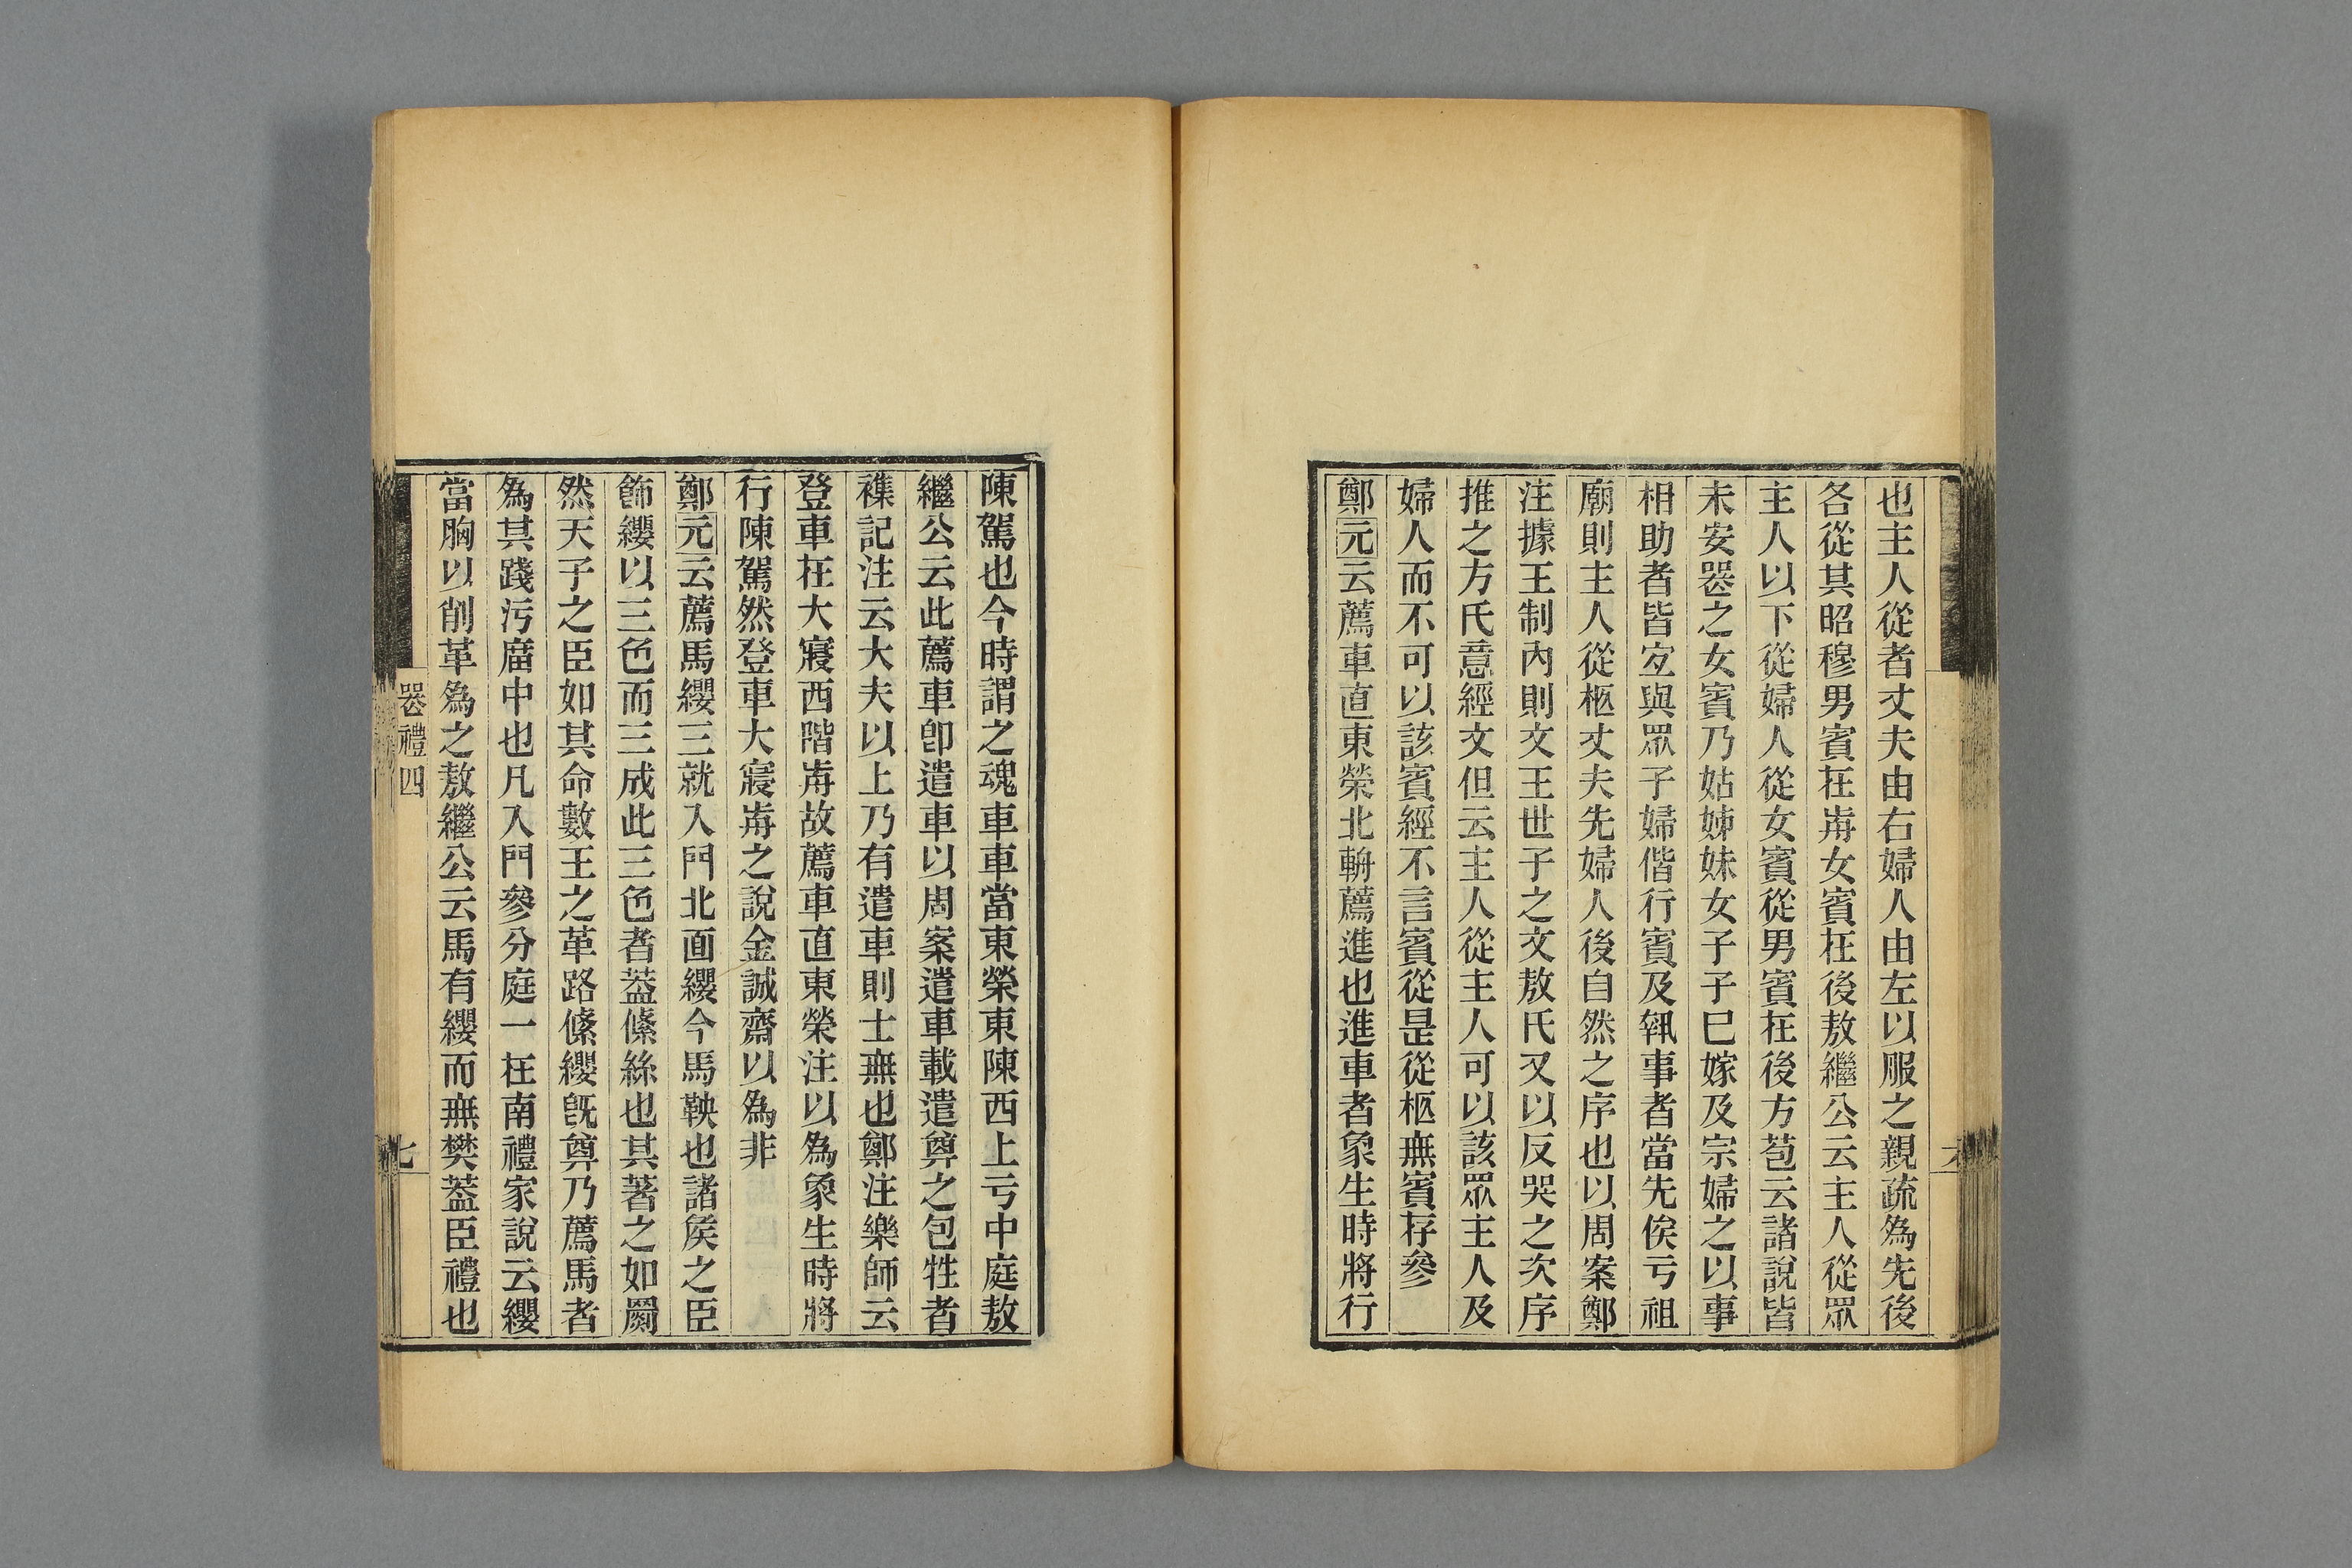 也主人從者丈夫由右婦人由左以服之親疏爲先後
各從其昭穆男賓在歬女賓在後敖繼公云主人從眾
主人以下從婦人從女賓從男賓在後方苞云諸說皆
未安器之女賓乃姑姊妹女子子已嫁及宗婦之以事
相助者皆宐與眾子婦偕行賓及執事者當先俟亏祖
廟則主人從柩丈夫先婦人後自然之序也以周案鄭
注據王制內則文王世子之文敖氏又以反哭之次序
推之方氏意經文但云主人從主人可以該眾主人及
婦人而不可以該賓經不言賓從是從柩無賓存參
鄭元云薦車直東榮北輈薦進也進車者象生時將行
陳駕也今時謂之魂車車當東榮東陳西上亏中庭敖
繼公云此薦車卽遣車以周案遣車載遣尊之包牲者
襍記注云大夫以上乃有遣車則士無也鄭注樂師云
登車在大寢西階歬故薦車直東榮注以爲象生時將
行陳駕然登車大寢歬之說金誠齋以爲非
鄭元云薦馬纓三就入門北面纓今馬鞅也諸侯之臣
飾纓以三色而三成此三色者葢絛絲也其著之如罽
然天子之臣如其命數王之革路絛纓旣尊乃薦馬者
爲其踐污廟中也凡入門參分庭一在南禮家說云纓
當胸以削革爲之敖繼公云馬有纓而無樊葢臣禮也
器禮四
七